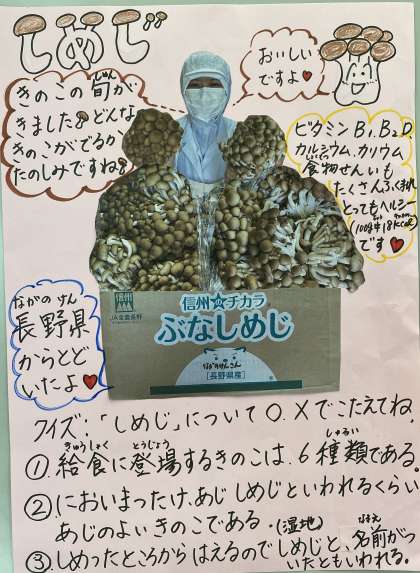 しめじ
おいしい
ですよ♥
きのこの旬が
しゅん
きました♪どんな
きのこがでるか、
たのしみですね♪
ビタミンB₁、B₂、D、
カルシウム、カリウム
食物せんいも
たくさんふくまれ
とってもヘルシー
(100g中18kcal)
です♥
ながの けん
長野県
からとど
いたよ♥
信州
JA全農長野
信州のチカラ
ぶなしめじ
ながのけんさん
[長野県産]
クイズ:「しめじ」について○、×でこたえてね。
きゅうしょく とうじょう しゅるい
①.給食に登場するきのこは、6種類である。
②においまつたけ、あじしめじといわれるくらい
あじのよいきのこである。
(湿地)
なまえ
③.しめったところからはえるのでしめじと、名前がつ
いたともいわれる。